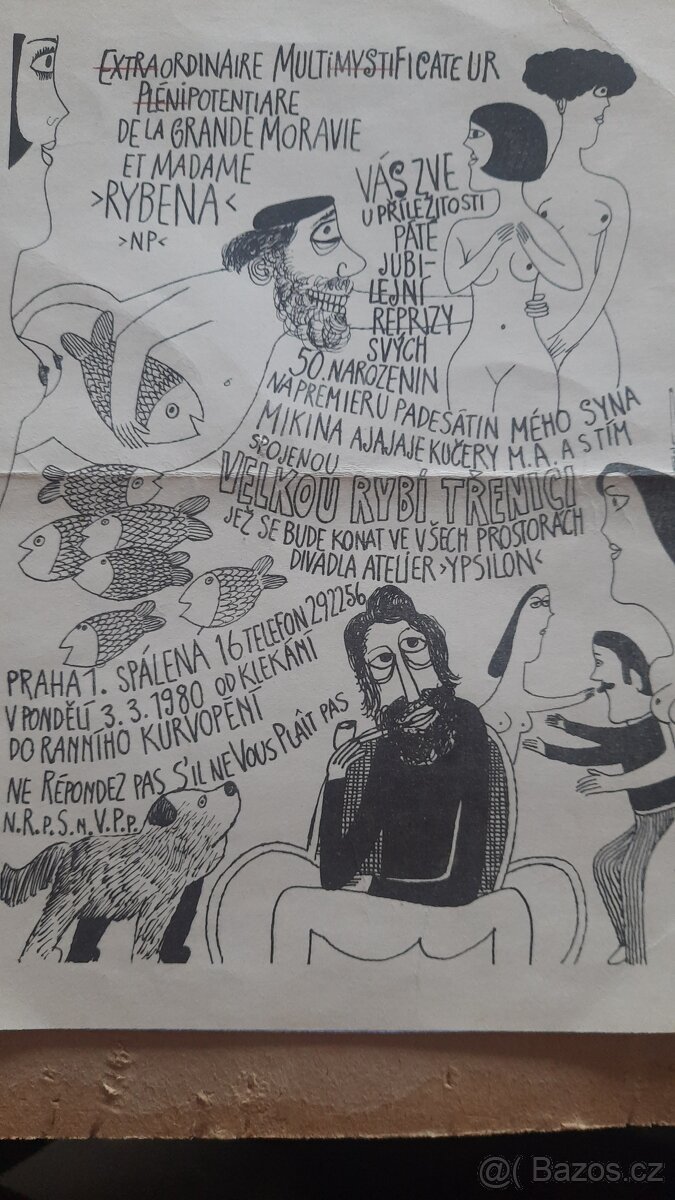 EXTRAORDINAIRE MULTIMYSTIFICATEUR
PLÉNIPOTENTIARE
DE LA GRANDE MORAVIE
ET MADAME
>RYBENA<
>NP<
VÁS ZVE
U PŘÍLEŽITOSTI
PÁTÉ
JUBI-
LEJNÍ
REPRIZY
SVÝCH
50. NAROZENIN
NA PREMIERU PADESÁTIN MÉHO SYNA
MIKINA AJAJAJE KUČERY M.A. A S TÍM
SPOJENOU
VELKOU RYBÍ TŘENICI
JEŽ SE BUDE KONAT VE VŠECH PROSTORÁCH
DIVADLA ATELIER >YPSILON<
PRAHA 1. SPÁLENA 16 TELEFON 292256
V PONDĚLÍ 3.3.1980 OD KLEKÁNÍ
DO RANNÍHO KURVOPĚNÍ
NE RÉPONDEZ PAS S'IL NE VOUS PLAÎT PAS
N.R.P.S.N.V.P.P.
@( Bazos.cz